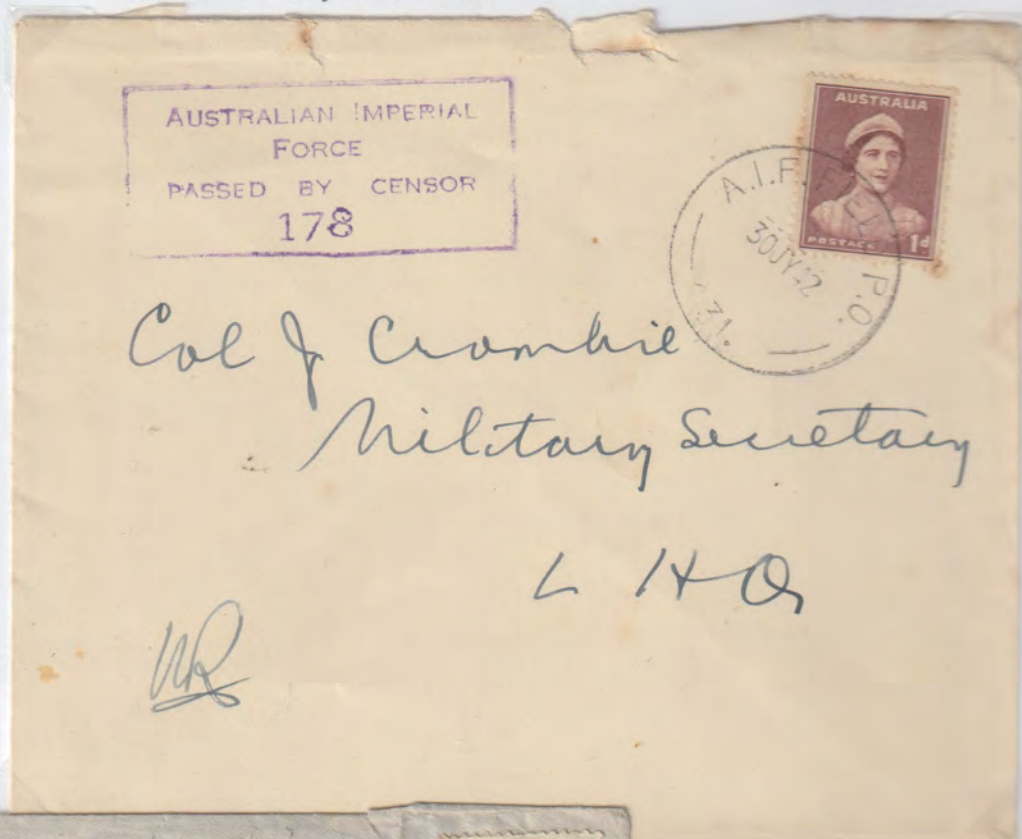 AUSTRALIAN IMPERIAL
FORCE
PASSED BY CENSOR
178
AUSTRALIA
POSTAGE 1d
A.I.F. FIELD P.O.
30JY42
Col J Crombie
Military Secretary
L H Q